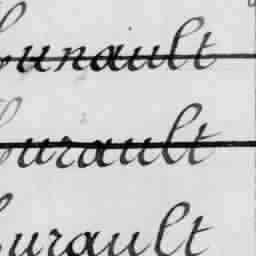 urault
urault
urault